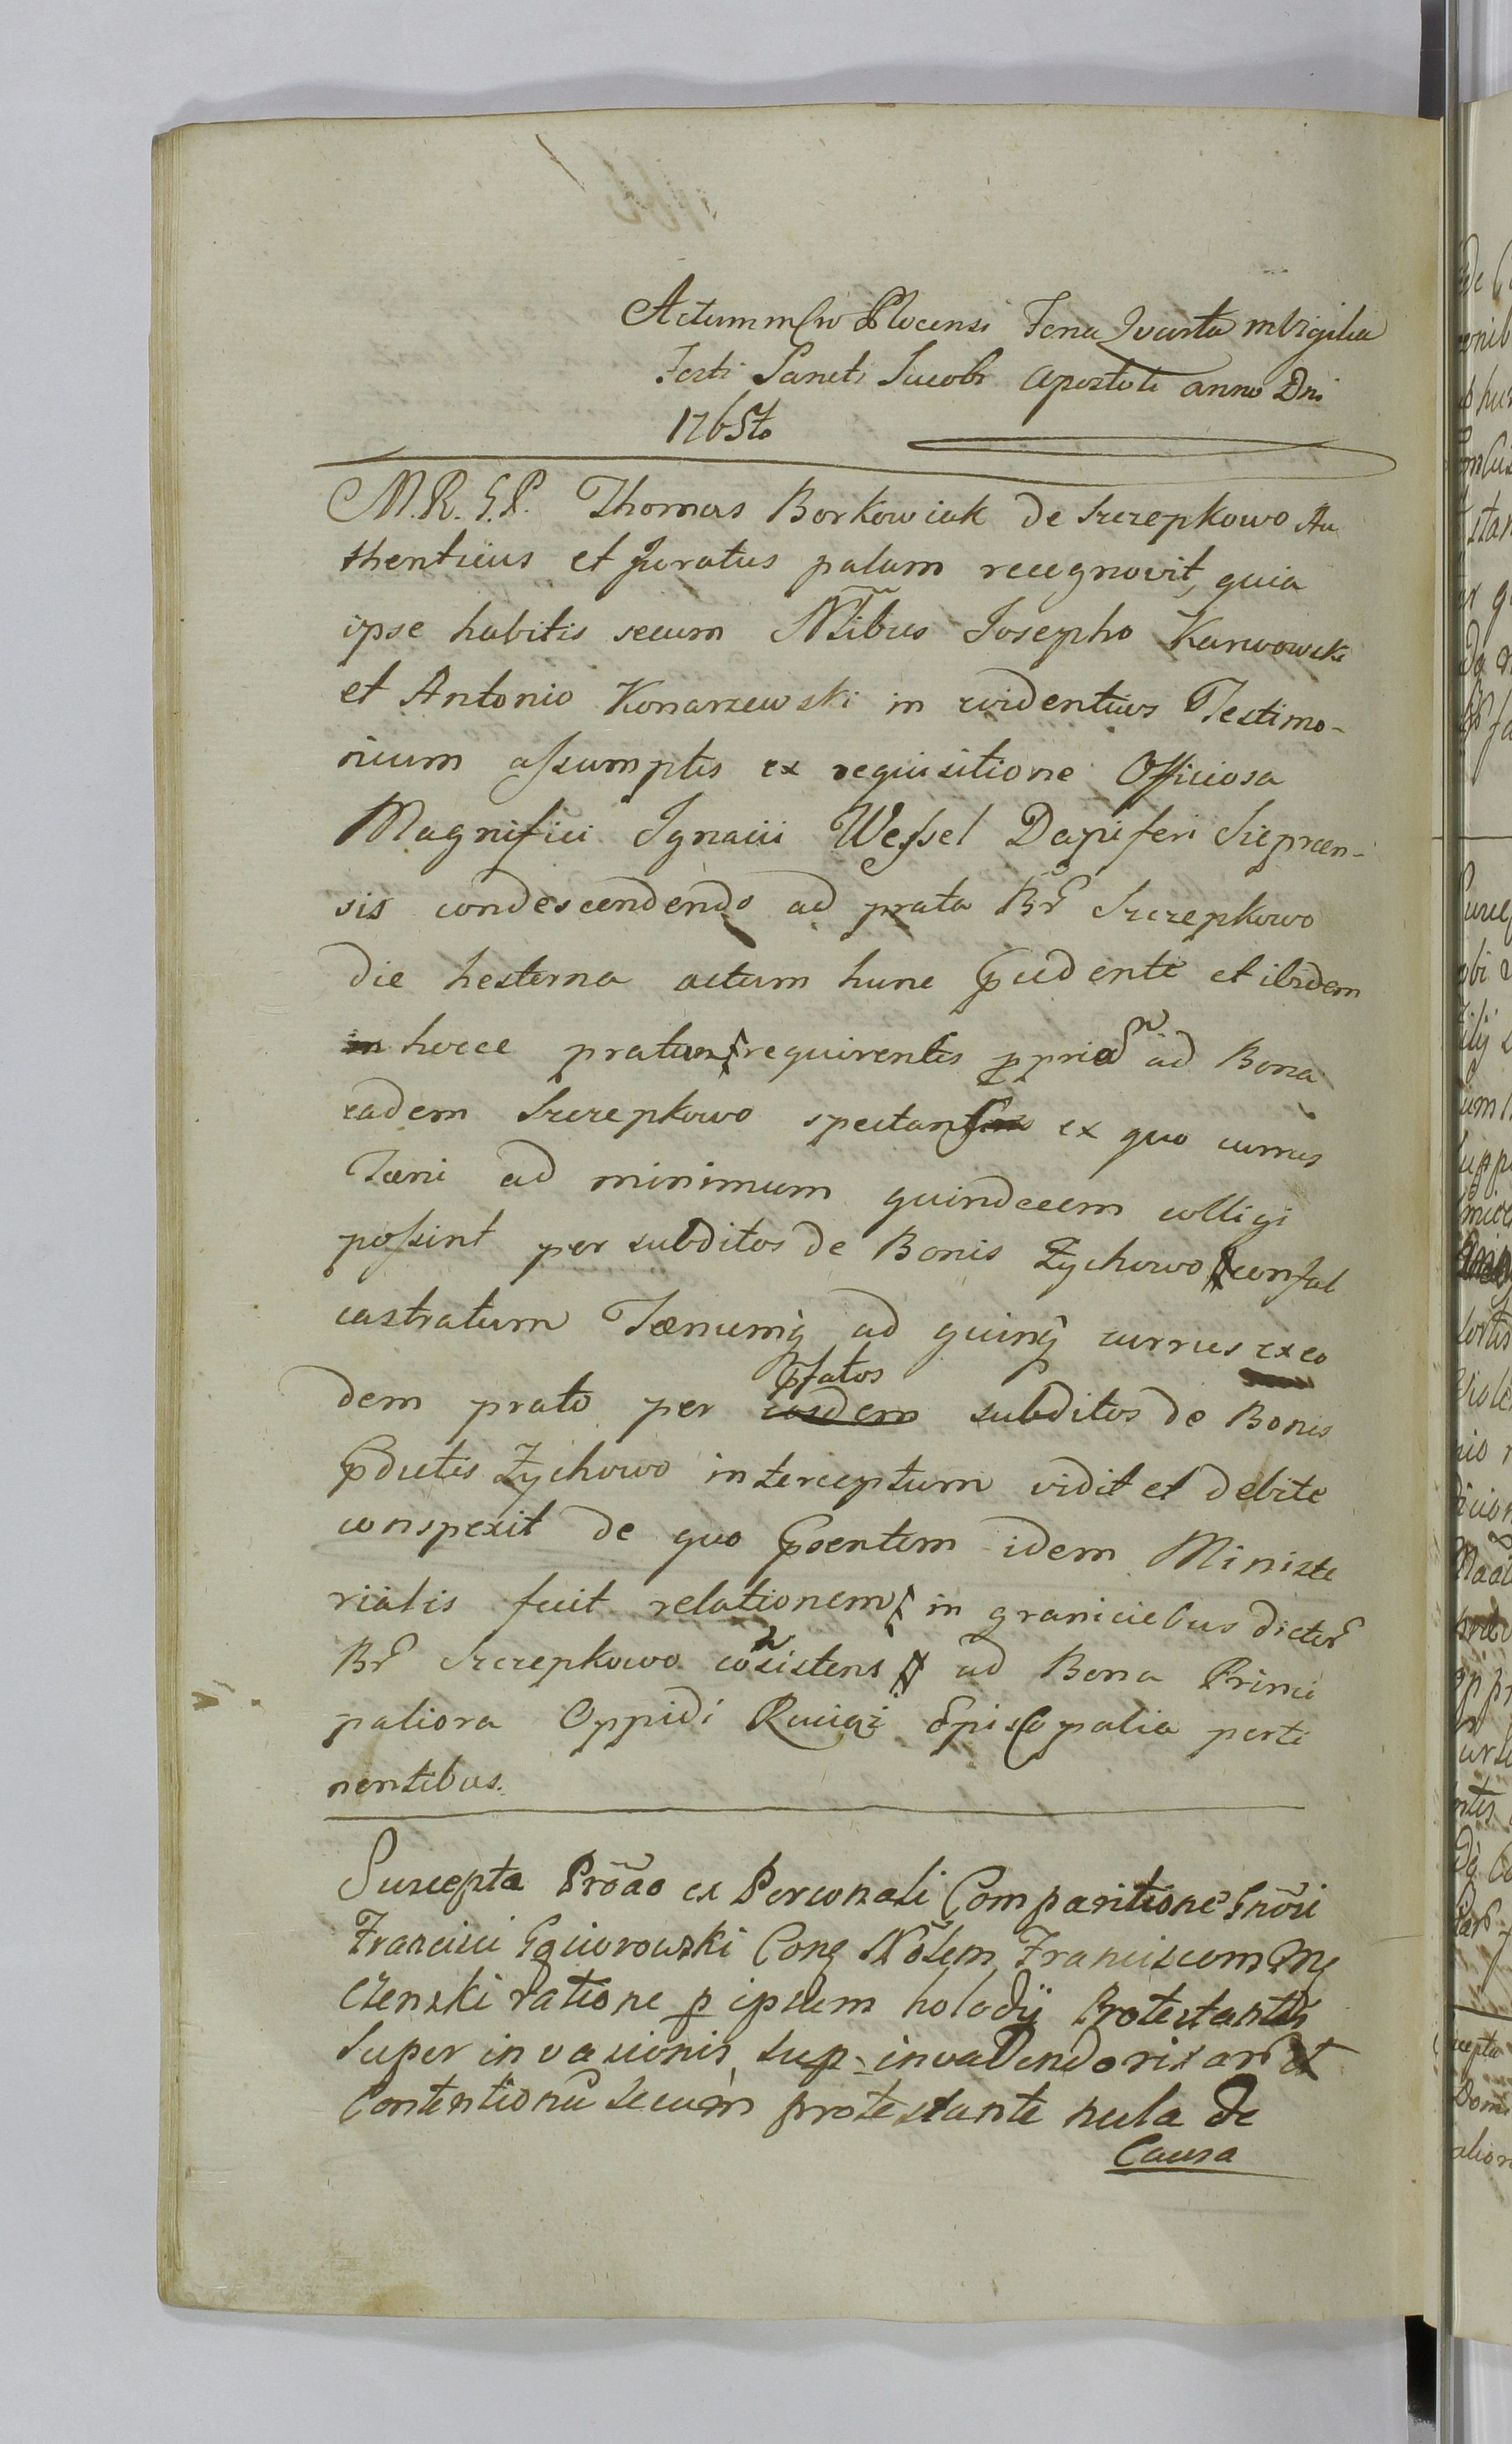 Actum in Cro Plocensi Feria Quarta in Vigilia
Festi Sancti Jacobi Apostoli anno Dni
1765to
M. R. G. P. Thomas Borkowiak de Szczepkowo Au
thenticus et Juratus palam recognovit, quia
ipse habitis secum Nlibus Josepho Karwowski
et Antonio Konarzewski in evidentius Testimo-
nium assumptis ex requisitione Officiosa
Magnifici Ignacii Wessel Dapiferi Sieprcen-
sis condescendendo ad prata Br Szczepkowo
die hesterna actum hunc pcedente et ibidem
in hocce pratum requirentis pprie ad Bona
eadem Szczepkowo spectans ex quo currus
faeni ad minimum quindecem colligi
possint per subditos de Bonis Zychowo confal
castratum Faenumq ad quinq currus ex eo
dem prato per eosdem pfatos subditos de Bonis
pdictis Zychowo interceptum vidit et debite
conspexit de quo psentem idem Ministe
rialis fecit relationem in graniciebus dictor
Br Szczepkowo cosistens ad Bona Princi
paliora Oppidi Raciąż Episcopalia perti
nentibus.
Suscepta Proao ex Personali Comparitione Gnosi
Francisci Gąsiorowski Cong Nolem Franciscum Mę
czenski ratione p ipsum holodÿ Protestantis
super invasionis sup invadendo rixar et
Contentionu secum protestante nula de
Causa